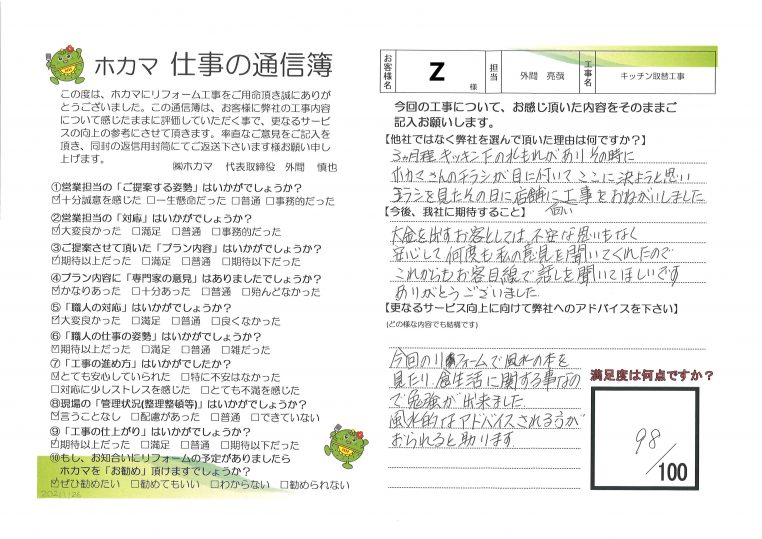 ホカマ 仕事の通信簿
この度は、ホカマにリフォーム工事をご用命頂き誠にありが
とうございました。この通信簿は、お客様に弊社の工事内容
について感じたままに評価していただく事で、更なるサービ
スの向上の参考にさせて頂きます。率直なご意見をご記入を
頂き、同封の返信用封筒にてご返送下さいます様お願い申し
上げます。
㈱ホカマ 代表取締役 外間 慎也
①営業担当の「ご提案する姿勢」はいかがでしょうか?
☑十分誠意を感じた □一生懸命だった □普通 □事務的だった
②営業担当の「対応」はいかがでしょうか?
☑大変良かった □満足 □普通 □事務的だった
③ご提案させて頂いた「プラン内容」はいかがでしょうか?
☑期待以上だった □満足 □普通 □期待以下だった
④プラン内容に「専門家の意見」はありましたでしょうか?
☑かなりあった □十分あった □普通 □殆んどなかった
⑤「職人の対応」はいかがでしょうか?
☑大変良かった □満足 □普通 □良くなかった
⑥「職人の仕事の姿勢」はいかがでしょうか?
☑期待以上だった □満足 □普通 □雑だった
⑦「工事の進め方」はいかがでしたか?
☑とても安心していられた □特に不安はなかった
□対応に少しストレスを感じた □とても不満を感じた
⑧現場の「管理状況(整理整頓等)」はいかがでしょうか?
☑言うことなし □配慮があった □普通 □できていない
⑨「工事の仕上がり」はいかがでしょうか?
☑期待以上だった □満足 □普通 □期待以下だった
⑩もし、お知合いにリフォームの予定がありましたら
ホカマを「お勧め」頂けますでしょうか?
☑ぜひ勧めたい □勧めてもいい □わからない □勧められない
2021/1/26
お客様名 Z 様 担当 外間 亮哉 工事名 キッチン取替工事
今回の工事について、お感じ頂いた内容をそのままご
記入お願いします。
【他社ではなく弊社を選んで頂いた理由は何ですか?】
3ヵ月程キッキン下の水もれがありその時に
ホカマさんのチラシが目に付いてここに決ようと思い
チラシを見たその日に店舗に工事をおねがいしました
【今後、我社に期待すること】
大金を出すお客としては不安な思いもなく
安心して何度も私の意見を聞いてくれたので
これからもお客目線で話しを聞いてほしいです
ありがとうございました
【更なるサービス向上に向けて弊社へのアドバイスを下さい】
(どの様な内容でも結構です)
今回のリフォームで風水の本を
見たり、食生活に関する事なの
で勉強が出来ました
風水的なアドバイスされる方が
おられると助ります
満足度は何点ですか?
98
/100